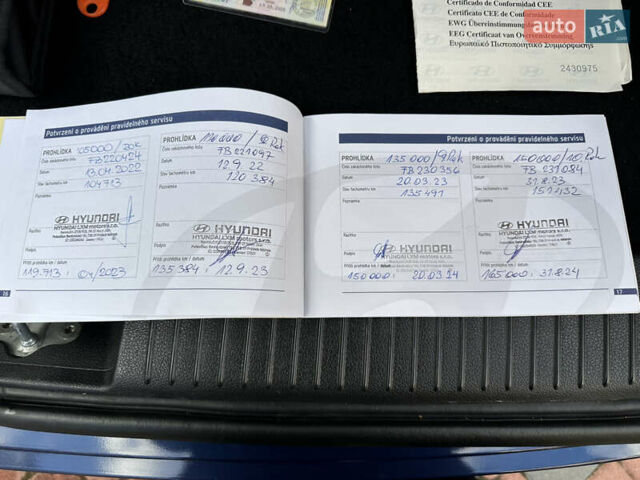 Certificado de Conformidad CEE
Certificato CEE di Conformità
EWG Übereinstimmungs
EEG Certificaat van Overeenstemming
Ευρωπαϊκό Πιστοποιητικό Συμμόρφωσης
2430975
auto RIA.com
Potvrzení o provádění pravidelného servisu
PROHLÍDKA 105000/30k
Číslo zakázkového listu FB220424
Datum 13.04.2022
Stav tachometru km 104713
Poznámka
HYUNDAI
HYUNDAI LXM motors s.r.o.
Razítko
Podpis
Příští prohlídka km / datum
119.713 04/2023
16
PROHLÍDKA 120000/
Číslo zakázkového listu FB221097
Datum 12.9.22
Stav tachometru km 120384
Poznámka
HYUNDAI
HYUNDAI LXM motors s.r.o.
Razítko
Podpis
Příští prohlídka km / datum
135384 12.9.23
Potvrzení o provádění pravidelného servisu
PROHLÍDKA 135000/9.Rok
Číslo zakázkového listu FB230356
Datum 20.03.23
Stav tachometru km 135491
Poznámka
HYUNDAI
HYUNDAI LXM motors s.r.o.
Razítko
Podpis
Příští prohlídka km / datum
150000 20.03.24
PROHLÍDKA 150000/10.Rok
Číslo zakázkového listu FB231084
Datum 31.8.23
Stav tachometru km 151132
Poznámka
HYUNDAI
HYUNDAI LXM motors s.r.o.
Razítko
Podpis
Příští prohlídka km / datum
165000 31.8.24
17